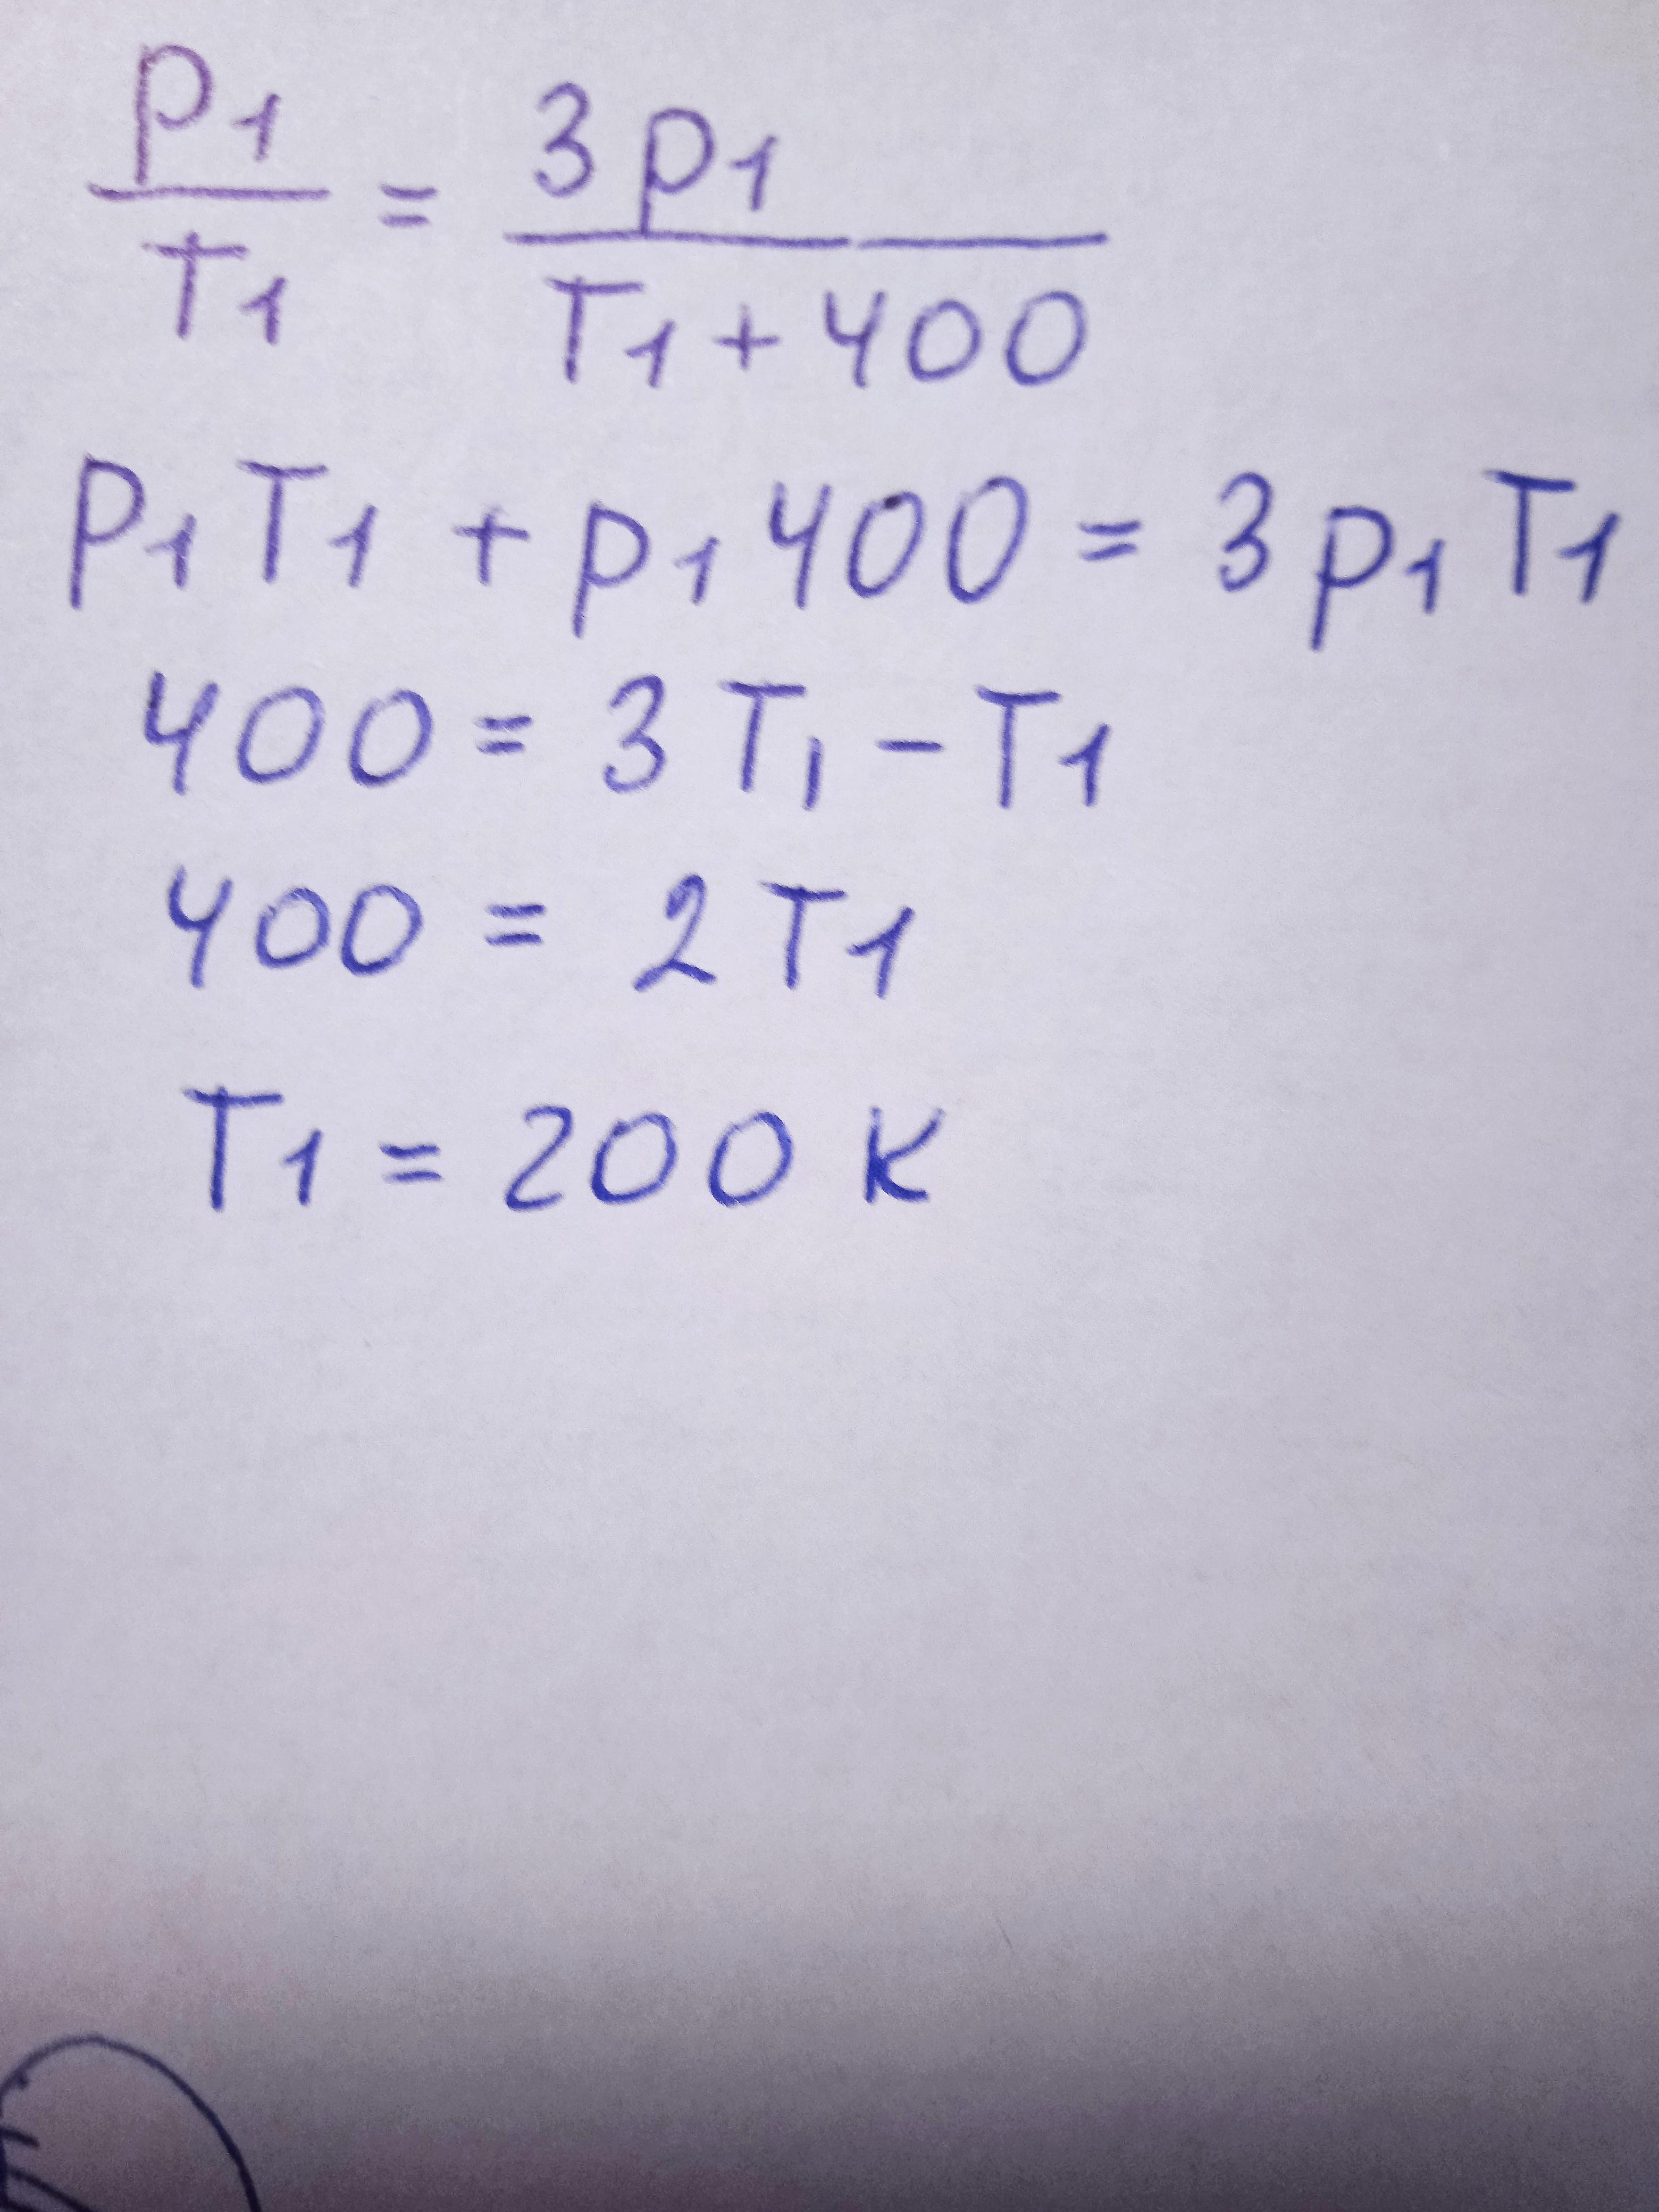 p1/T1 = 3p1/(T1+400)
p1T1 + p1400 = 3p1T1
400 = 3T1 - T1
400 = 2T1
T1 = 200 K